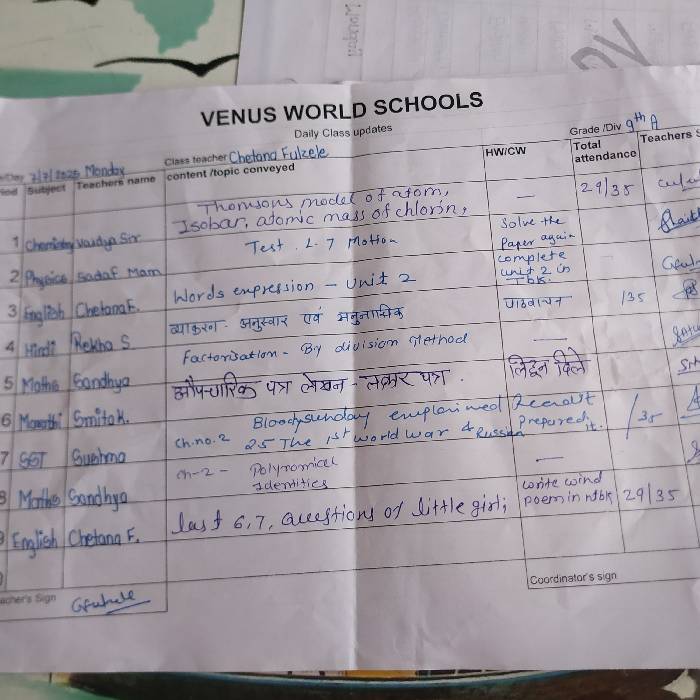 VENUS WORLD SCHOOLS
Daily Class updates
Grade /Div 9th A
Monday
Class teacher Chetana Fulzele
Subject Teachers name content /topic conveyed HW/CW Total attendance Teachers
1 Chemistry Vaidya Sir Thomsons model of atom, — 29/35
Isobar, atomic mass of chlorin,
2 Physics Sadaf Mam Test . L. 7 Motion Solve the
Paper again
3 English Chetana F. Words expression - Unit 2 complete
unit 2 in
Tbk.
4 Hindi Rekha S. व्याकरण - अनुस्वार एवं अनुनासिक /35
5 Maths Sandhya Factorisation - By division Method —
6 Marathi Smita K. औपचारिक पत्र लेखन - तक्रार पत्र . लिहून दिले
7 SST Sushma Bloodysunday
ch.no. 2 The 1st world war & Russian Prepared it. /35
8 Maths Sandhya ch-2 - Polynomical —
Identities
9 English Chetana F. last 6,7, Questions of little girl; write wind
poem in ntbk 29/35
Coordinator's sign